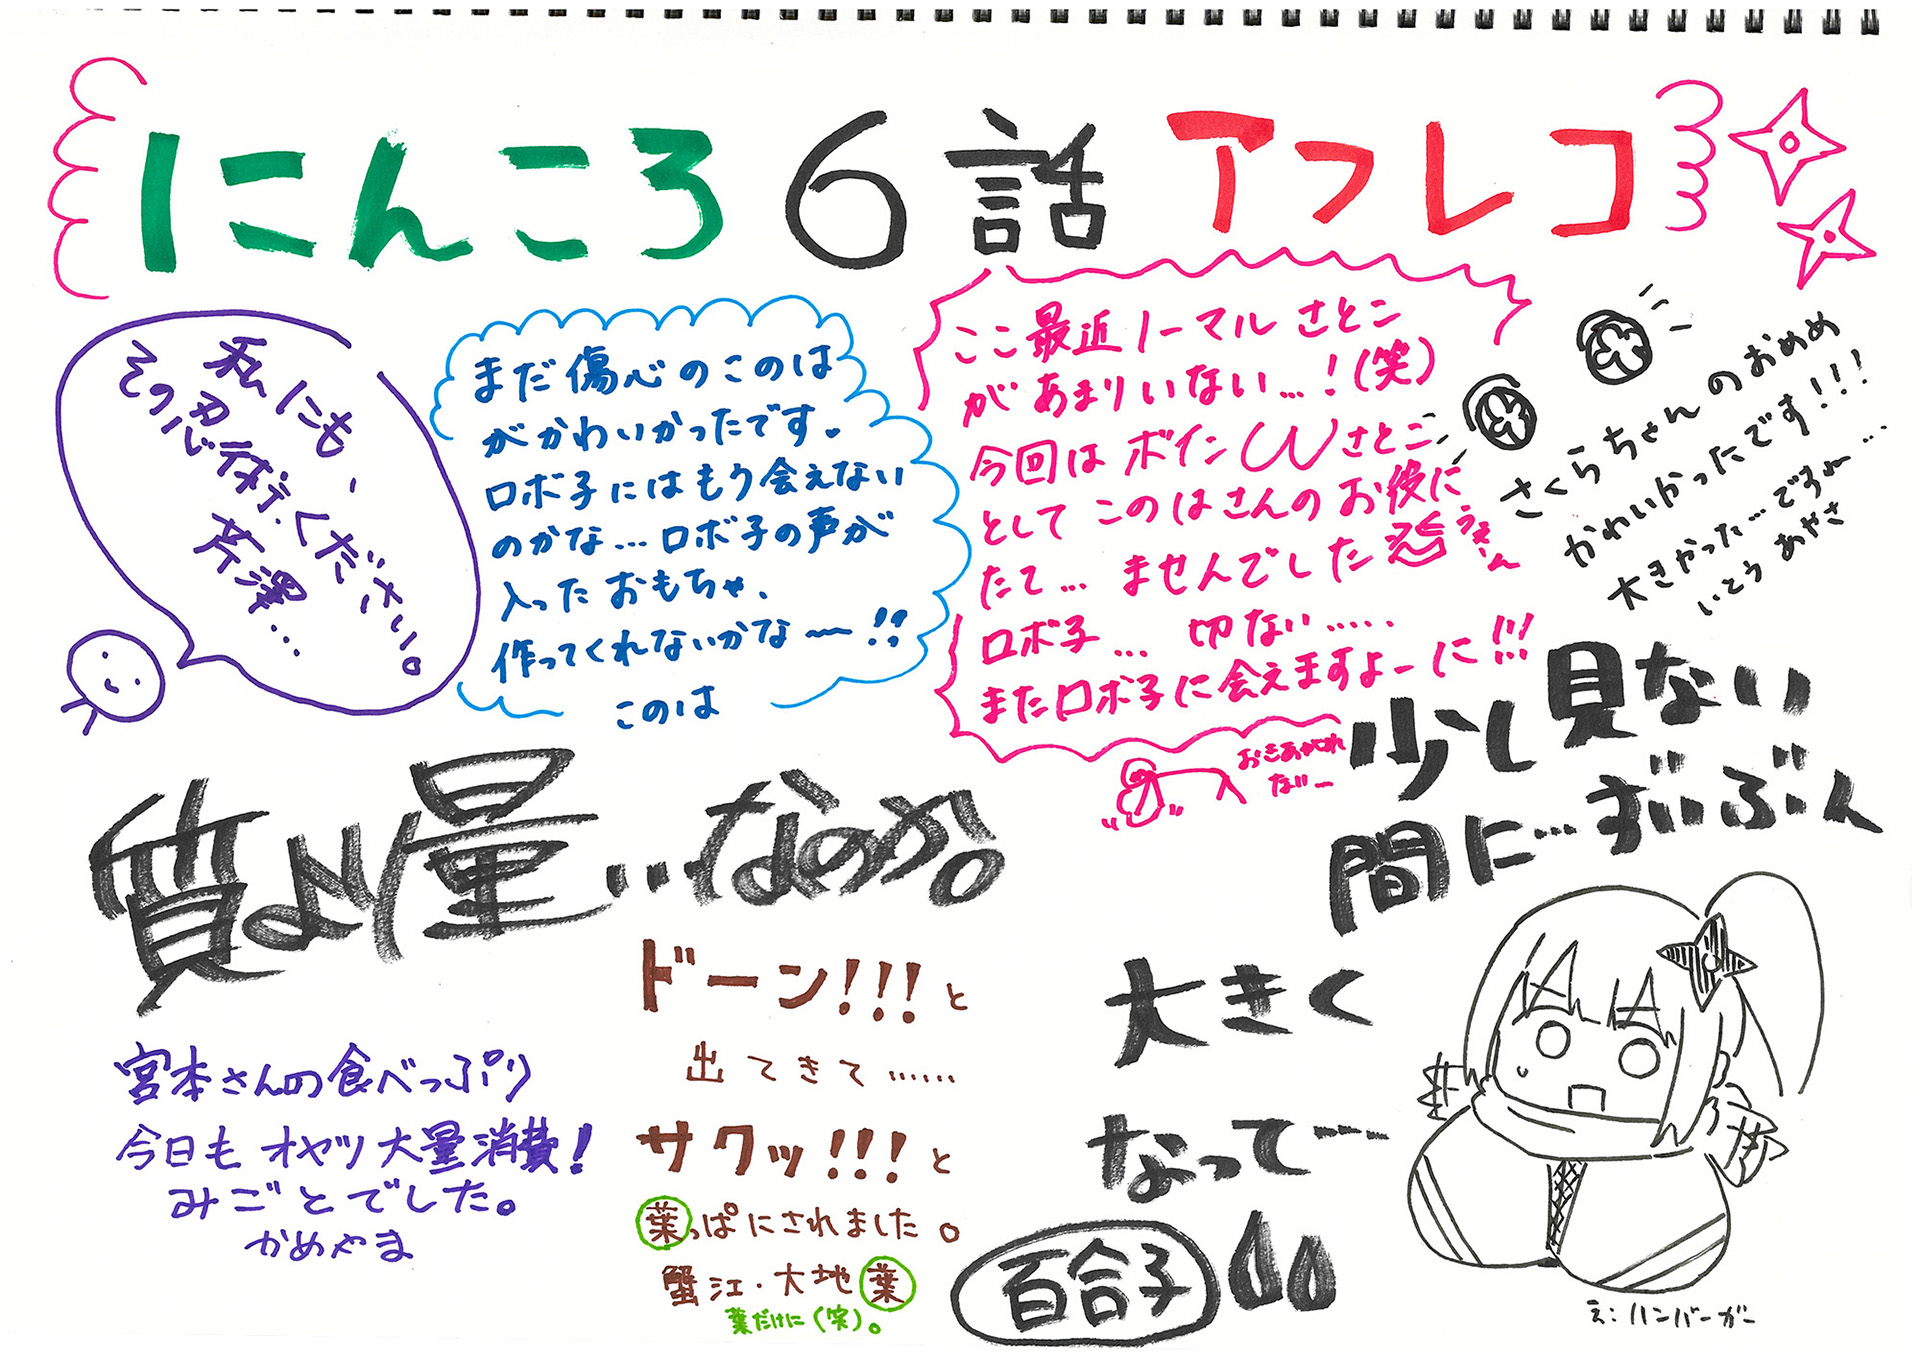 にんころ 6話 アフレコ
私にも、
その忍術ください。
芹澤…
まだ傷心のこのは
がかわいかったです。
ロボ子にはもう会えない
のかな…ロボ子の声が
入ったおもちゃ、
作ってくれないかな〜!!
このは
ここ最近ノーマルさとこ
があまりいない…!(笑)
今回はボインさとこ
としてこのはさんのお役に
たて…ませんでした
ロボ子…切ない……
またロボ子に会えますよーに!!!
おきあがれ
ない〜
さくらちゃんのおめめ
かわいかったです!!!
大きかった…ですね〜…
いとう あやさ
少し見ない
間に…ずいぶん
大きく
なって…
百合子
質より量…なのか。
宮本さんの食べっぷり
今日もオヤツ大量消費!
みごとでした。
かめやま
ドーン!!!と
出てきて……
サクッ!!!と
葉っぱにされました。
蟹江・大地葉
葉だけに(笑)。
え:ハンバーガー